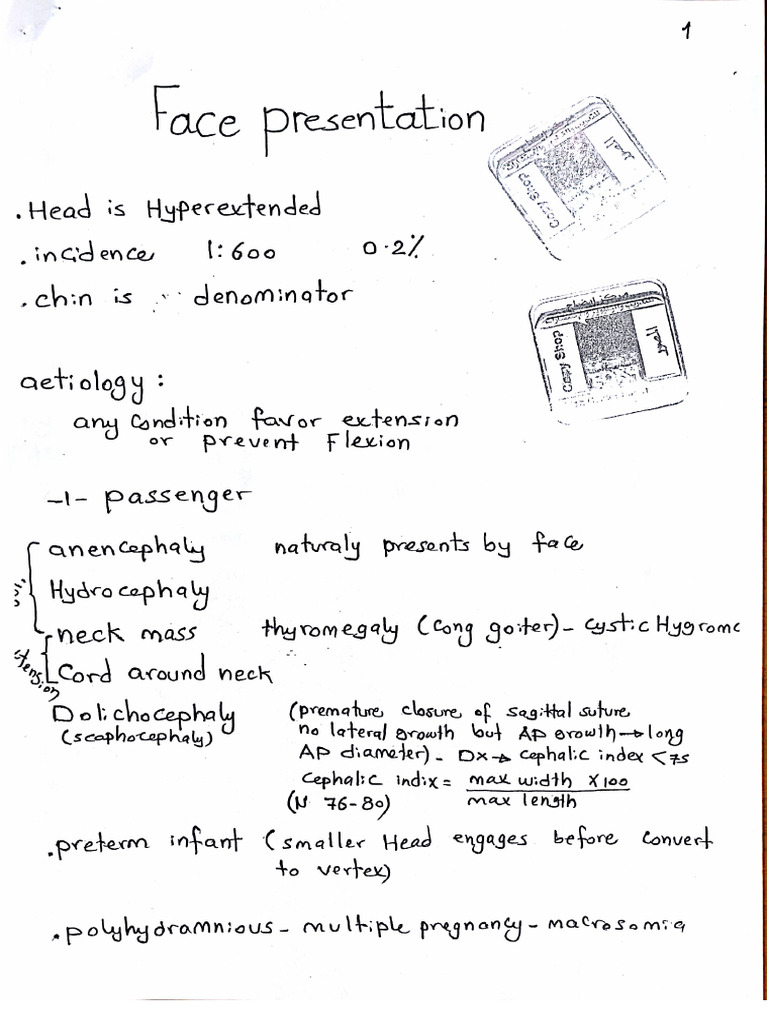 1
Face presentation
. Head is Hyperextended
. incidence 1:600 0.2%
. chin is denominator
aetiology :
any condition favor extension
or prevent Flexion
-1- passenger
anencephaly naturaly presents by face
Hydrocephaly
neck mass thyromegaly (cong goiter) - cystic Hygroma
Cord around neck
Dolichocephaly (premature closure of sagittal suture
(scaphocephaly) no lateral growth but AP growth → long
AP diameter) - Dx → cephalic index < 75
Cephalic indix = max width x 100
(N 76-80) max length
. preterm infant (smaller Head engages before convert
to vertex)
. polyhydramnious - multiple pregnancy - macrosomia
Copy Shop
Copy Shop